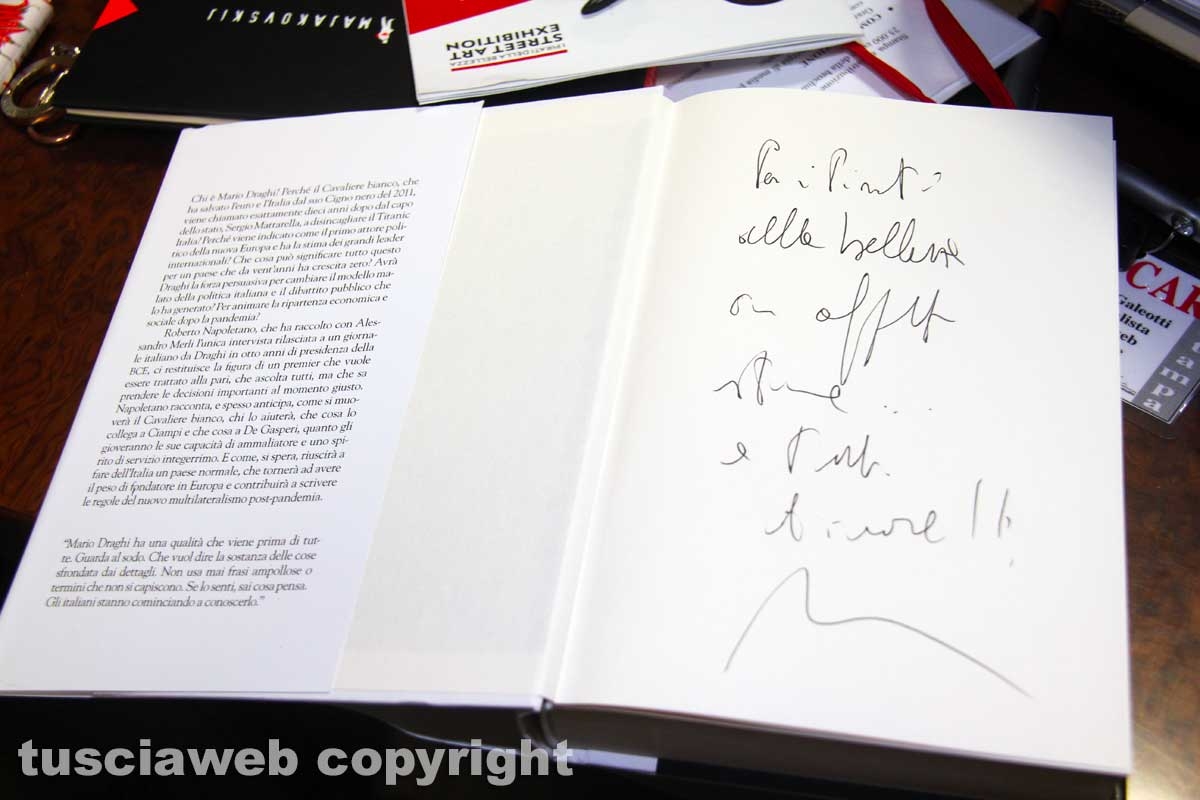 MAJAKOVSKIJ
I PIRATI DELLA BELLEZZA
STREET ART
EXHIBITION
Chi è Mario Draghi? Perché il Cavaliere bianco, che
ha salvato l'euro e l'Italia dal suo Cigno nero del 2011,
viene chiamato esattamente dieci anni dopo dal capo
dello stato, Sergio Mattarella, a disincagliare il Titanic
Italia? Perché viene indicato come il primo attore poli-
tico della nuova Europa e ha la stima dei grandi leader
internazionali? Che cosa può significare tutto questo
per un paese che da vent'anni ha crescita zero? Avrà
Draghi la forza persuasiva per cambiare il modello ma-
lato della politica italiana e il dibattito pubblico che
lo ha generato? Per animare la ripartenza economica e
sociale dopo la pandemia?
Roberto Napoletano, che ha raccolto con Ales-
sandro Merli l'unica intervista rilasciata a un giorna-
le italiano da Draghi in otto anni di presidenza della
BCE, ci restituisce la figura di un premier che vuole
essere trattato alla pari, che ascolta tutti, ma che sa
prendere le decisioni importanti al momento giusto.
Napoletano racconta, e spesso anticipa, come si muo-
verà il Cavaliere bianco, chi lo aiuterà, che cosa lo
collega a Ciampi e che cosa a De Gasperi, quanto gli
gioveranno le sue capacità di ammaliatore e uno spi-
rito di servizio integerrimo. E come, si spera, riuscirà a
fare dell'Italia un paese normale, che tornerà ad avere
il peso di fondatore in Europa e contribuirà a scrivere
le regole del nuovo multilateralismo post-pandemia.
"Mario Draghi ha una qualità che viene prima di tut-
te. Guarda al sodo. Che vuol dire la sostanza delle cose
sfrondata dai dettagli. Non usa mai frasi ampollose o
termini che non si capiscono. Se lo senti, sai cosa pensa.
Gli italiani stanno cominciando a conoscerlo."
Per i Pirati
della bellezza
con affetto
stima ...
e
!!
CAR
Galeotti
lista
eb
stampa
tusciaweb copyright